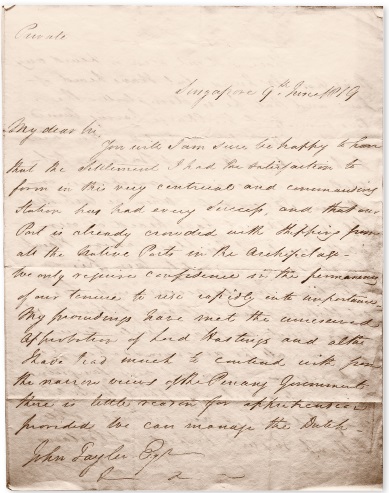 Private
Singapore 9th June 1819
My dear Sir,
You will I am sure be happy to hear
that the Settlement I had the satisfaction to
form in this very centrical and commanding
Station has had every success, and that our
Port is already crowded with Shipping from
all the Native Ports in the Archipelago.
We only require confidence in the permanency
of our tenure to rise rapidly into importance
My proceedings have met the unreserved
Approbation of Lord Hastings and altho
I have had much to contend with from
the narrow views of the Penang Government
there is little reason for apprehension
provided we can manage the Dutch
John Tayler Esqr